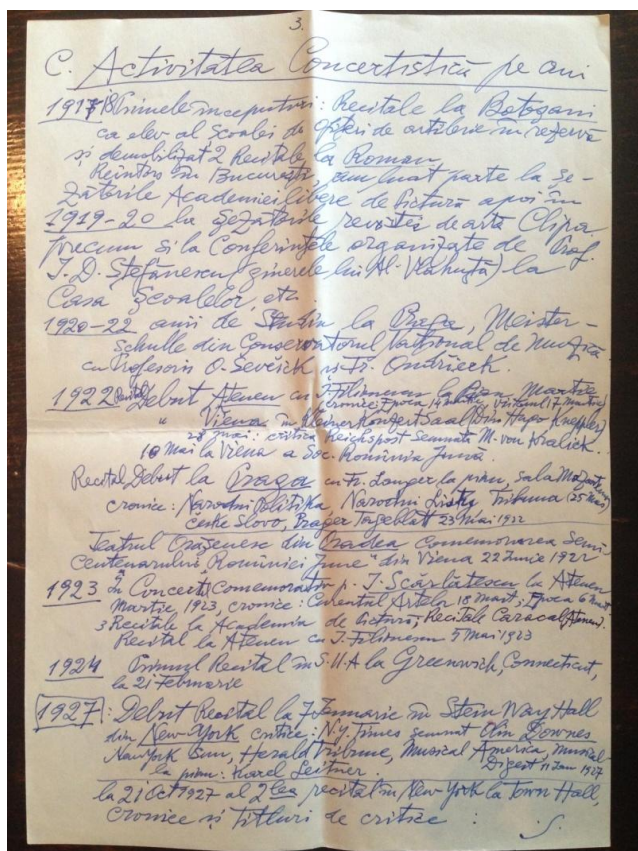 3.
C. Activitatea Concertistică pe ani
1917-18 Primele începuturi: Recitale la Botoșani
ca elev al Școalei de ofițeri de artilerie în rezervă
și demobilizat 2 Recitale la Roman.
Reîntors în București, am luat parte la șe-
zătorile Academiei libere de Pictură apoi în
1919-20 la șezătorile revistei de artă Clipa
precum și la Conferințele organizate de Prof.
I. D. Ștefănescu (ginerele lui Al. Vlahuță) la
Casa Școalelor, etc.
1920-22 anii de Studiu la Praga, Meister-
schulle din Conservatorul Național de Muzică
cu Profesorii O. Ševčick și Fr. Ondriček.
1922 Recital Debut Ateneu cu I. Filionescu la Pian, Martie
cronici: Epoca 14 Martie, Viitorul (17 Martie)
" Viena în Kleiner Konzert Saal (Dir. Hugo Knepler)
28 Mai: critica Reichspost semnată M. von Kralick.
10 Mai la Viena a Soc. România Jună.
Recital Debut la Praga cu Fr. Langer la pian, sala
cronice: Narodni Politika, Narodni Listy, Tribuna (25 Mai)
ceske Slovo, Prager Tageblatt 23 Mai 1922
Teatrul Orășenesc din Oradea Comemorarea Semi-
Centenarului "României June" din Viena 22 Iunie 1922
1923 în Concert Comemorativ p. I. Scărlătescu la Ateneu
Martie, 1923, cronice: Curentul Artelor 18 Mart; Epoca 6 Mart
3 Recitale la Academia de Pictură, Recitale Caracal
Recital la Ateneu cu I. Filionescu 5 Mai 1923
1924 Primul Recital în S.U.A la Greenwich, Connecticut,
la 21 Februarie
1927: Debut Recital la 7 Ianuarie în Stein Way Hall
din New-York critice: N.Y. Times semnat Olin Downes
New York Sun, Herald Tribune, Musical America, Musical
Digest 11 Jan 1927
la pian: Karel Leitner.
la 21 Oct 1927 al 2lea recital în New-York la Town Hall,
cronice și titluri de critice :